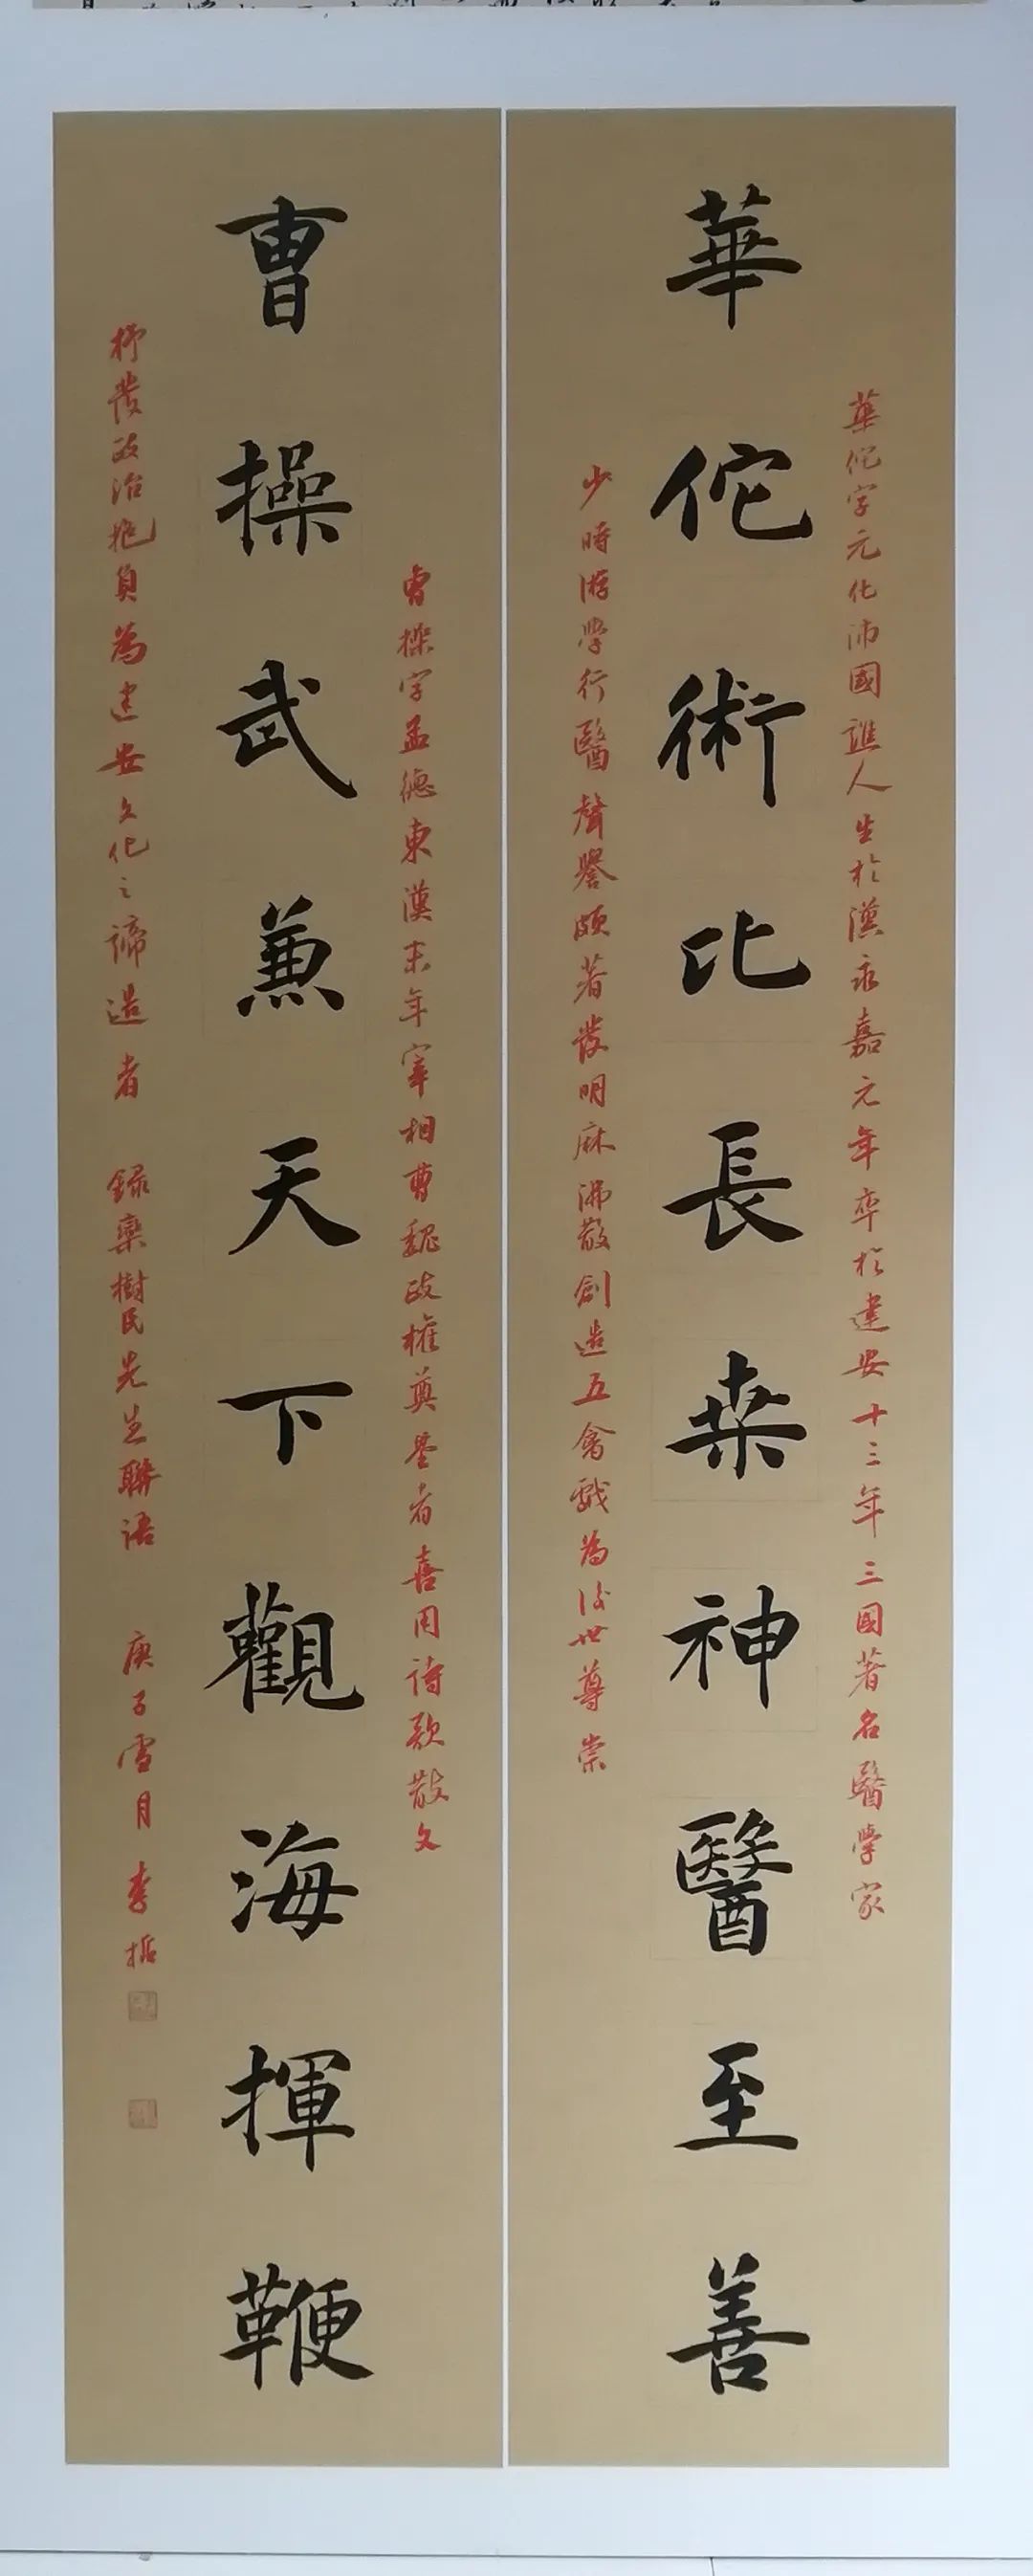 華佗字元化沛國譙人生於漢永嘉元年卒於建安十三年三國著名醫學家
華佗術比長桑神醫至善
少時游學行醫聲譽頗著發明麻沸散創造五禽戲為後世尊崇
曹操字孟德東漢末年宰相曹魏政權奠基者喜用詩歌散文
曹操武兼天下觀海揮鞭
抒發政治抱負為建安文化之締造者 錄欒樹民先生聯語 庚子雪月 李哲